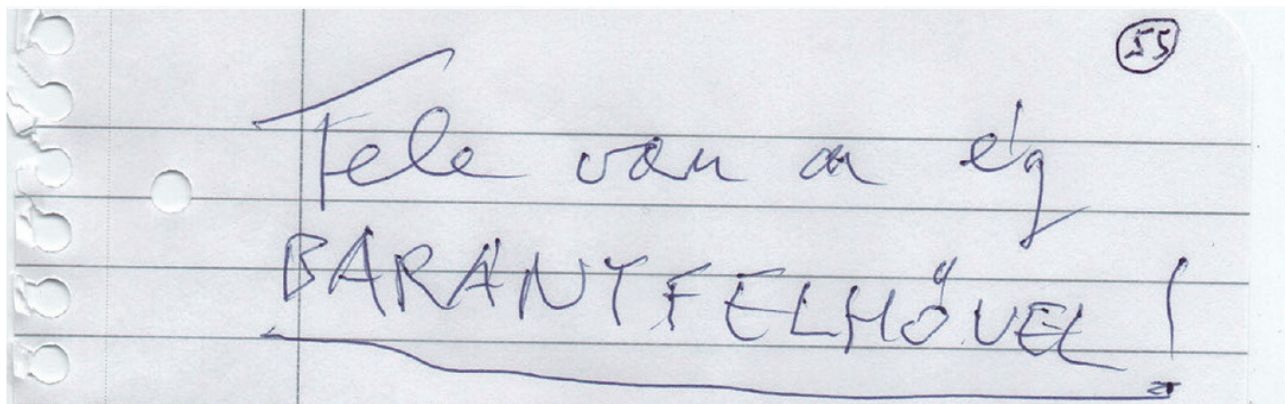 55
Tele van a ég
BARÁNYFELHŐVEL!